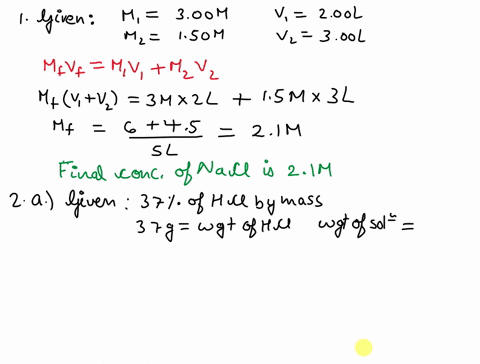 1. Given: M₁ = 3.00M V₁ = 2.00L
M₂ = 1.50M V₂ = 3.00L
MfVf = M₁V₁ + M₂V₂
Mf(V₁+V₂) = 3M×2L + 1.5M×3L
Mf = 6+4.5/5L = 2.1M
Final conc. of NaCl is 2.1M
2. a.) Given: 37% of HCl by mass
37g = wgt of HCl wgt of solⁿ =